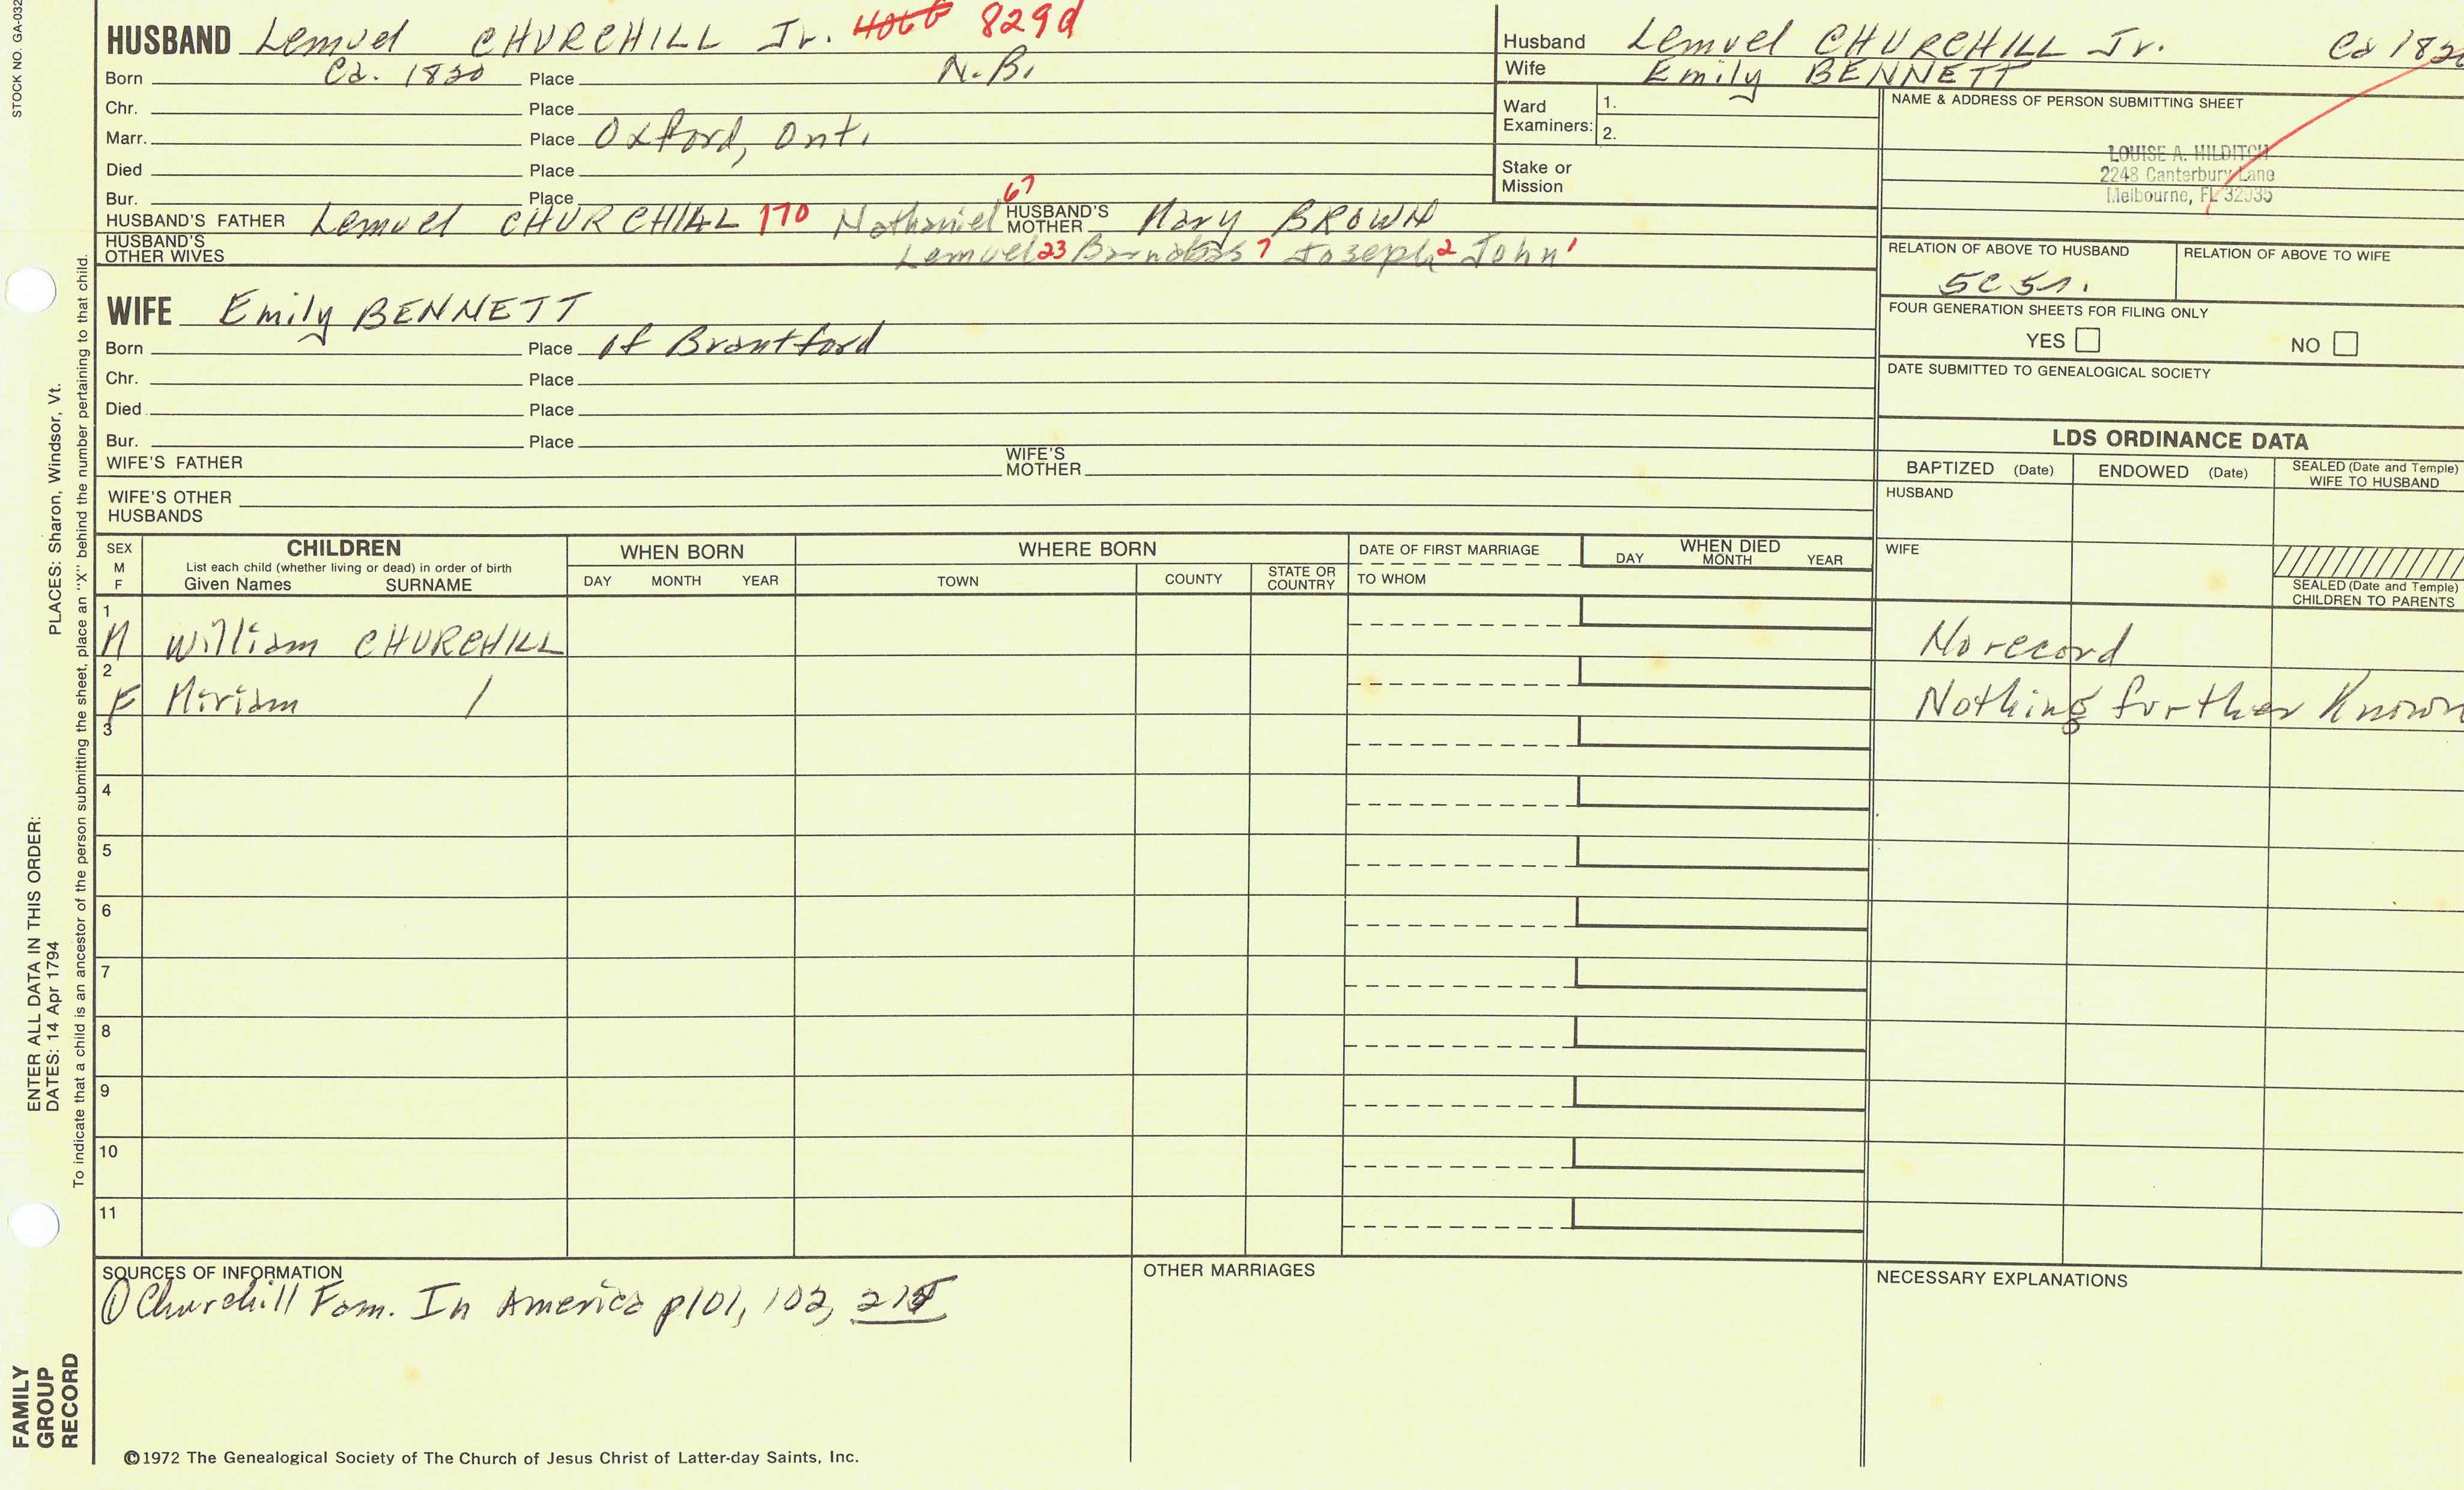 STOCK NO. GA-032
HUSBAND Lemuel CHURCHILL Jr. 829d
Born Ca. 1820 Place N.B.
Chr. Place
Marr. Place Oxford, Ont.
Died Place
Bur. Place
HUSBAND'S FATHER Lemuel CHURCHILL 170 Nathaniel 67 HUSBAND'S MOTHER Mary BROWN
HUSBAND'S OTHER WIVES Lemuel 23 Barnabas 7 Joseph 2 John 1
WIFE Emily BENNETT
Born Place of Brantford
Chr. Place
Died Place
Bur. Place
WIFE'S FATHER WIFE'S MOTHER
WIFE'S OTHER HUSBANDS
Husband Lemuel CHURCHILL Jr. Ca
Wife Emily BENNETT
Ward Examiners: 1.
2.
Stake or Mission
NAME & ADDRESS OF PERSON SUBMITTING SHEET
LOUISE A. HILDITCH
2248 Canterbury Lane
Melbourne, FL 32935
RELATION OF ABOVE TO HUSBAND RELATION OF ABOVE TO WIFE
5C5r.
FOUR GENERATION SHEETS FOR FILING ONLY
YES NO
DATE SUBMITTED TO GENEALOGICAL SOCIETY
LDS ORDINANCE DATA
BAPTIZED (Date) ENDOWED (Date) SEALED (Date and Temple) WIFE TO HUSBAND
HUSBAND
WIFE
SEALED (Date and Temple) CHILDREN TO PARENTS
SEX M F
CHILDREN
List each child (whether living or dead) in order of birth
Given Names SURNAME
WHEN BORN
DAY MONTH YEAR
WHERE BORN
TOWN COUNTY STATE OR COUNTRY
DATE OF FIRST MARRIAGE
TO WHOM
WHEN DIED
DAY MONTH YEAR
1 M William CHURCHILL No record
2 F Miriam / Nothing further Known
3
4
5
6
7
8
9
10
11
SOURCES OF INFORMATION
① Churchill Fam. In America p101, 102,
OTHER MARRIAGES
NECESSARY EXPLANATIONS
©1972 The Genealogical Society of The Church of Jesus Christ of Latter-day Saints, Inc.
FAMILY GROUP RECORD
ENTER ALL DATA IN THIS ORDER:
DATES: 14 Apr 1794
PLACES: Sharon, Windsor, Vt.
To indicate that a child is an ancestor of the person submitting the sheet, place an "X" behind the number pertaining to that child.